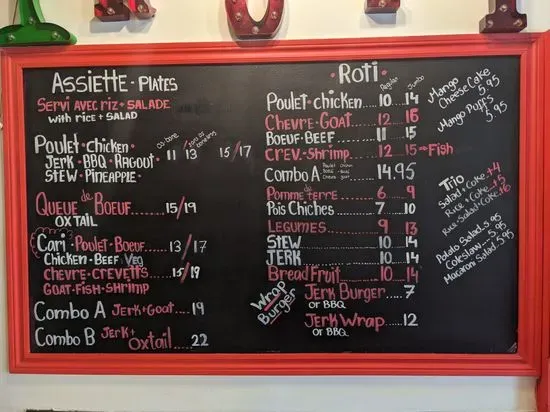 ROTI
Assiette - Plates
Servi avec riz + SALADE
with rice + SALAD
Poulet - chicken
Jerk - BBQ - Ragout 11 13 15/17
Stew - Pineapple
Queue de Boeuf 15/19
OXTAIL
Cari - Poulet - Boeuf 13/17
Chicken - Beef Veg
chevre - crevetts 15/19
Goat - Fish - Shrimp
Combo A Jerk + Goat 19
Combo B Jerk + Oxtail 22
Roti
Regular Jumbo
Poulet - chicken 10 14
Chevre - Goat 12 16
Boeuf - Beef 11 15
Crev. - Shrimp 12 15 → Fish
Combo A 14.95
Pomme de terre 6 9
Pois Chiches 7 10
Legumes 9 13
Stew 10 14
Jerk 10 14
Bread Fruit 10 14
Wrap Burger
Jerk Burger 7
or BBQ
Jerk Wrap 12
or BBQ
Mango
Cheese Cake
5.95
Mango Puffs
5.95
Trio
Salad + Cake +4
Rice + Cake +5
Rice - Salad + Cake +6
Potato Salad 5.95
Coleslaw 5.95
Macaroni Salad 5.95